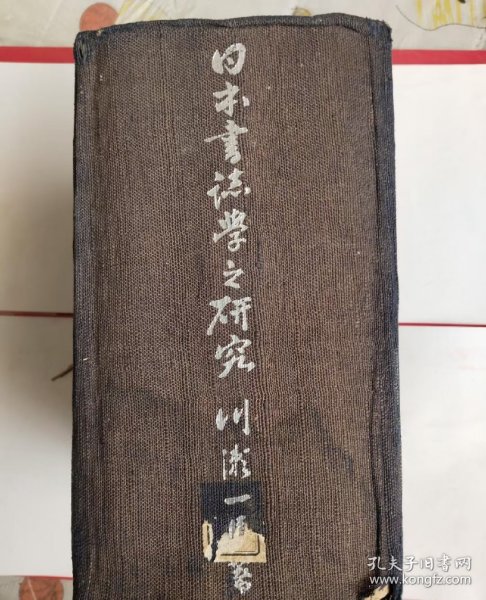 日本書誌学之研究 川瀬一馬著
孔夫子旧书网
www.kongfz.com